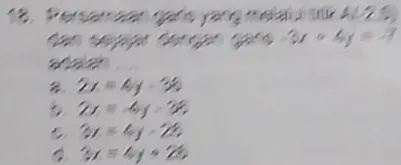 18. Persamaan garis yang melalui titik A(-2,5)
dan sejajar dengan garis -3x + 4y = -7
adalah ....
a. 2x = 4y - 36
b. 2x = -4y - 36
c. 3x = 4y - 26
d. 3x = 4y + 26